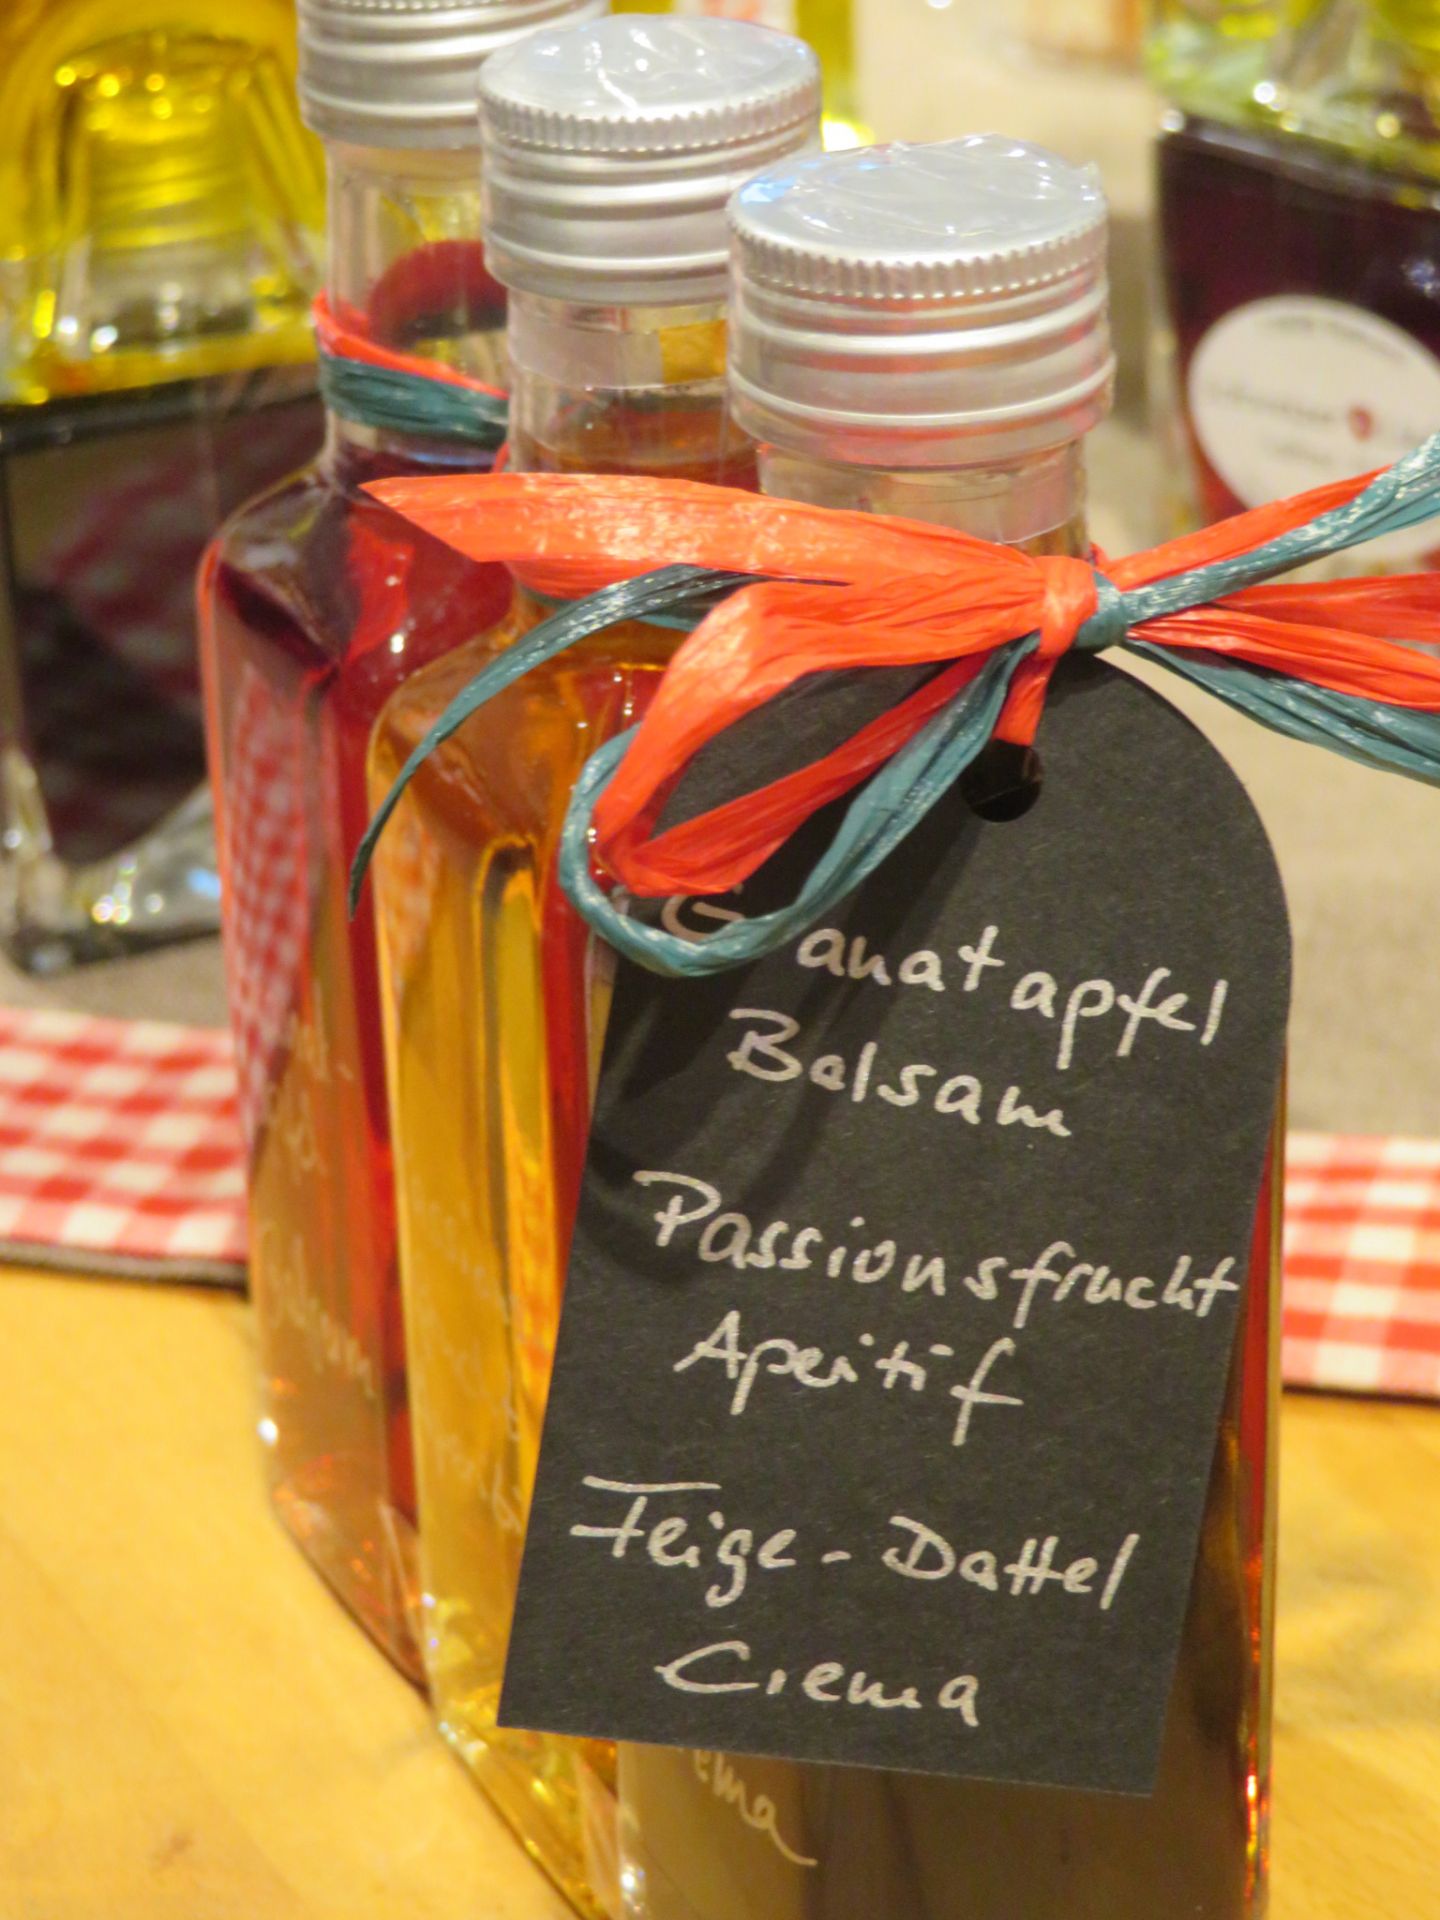 Granatapfel
Balsam
Passionsfrucht
Aperitif
Feige-Dattel
Crema